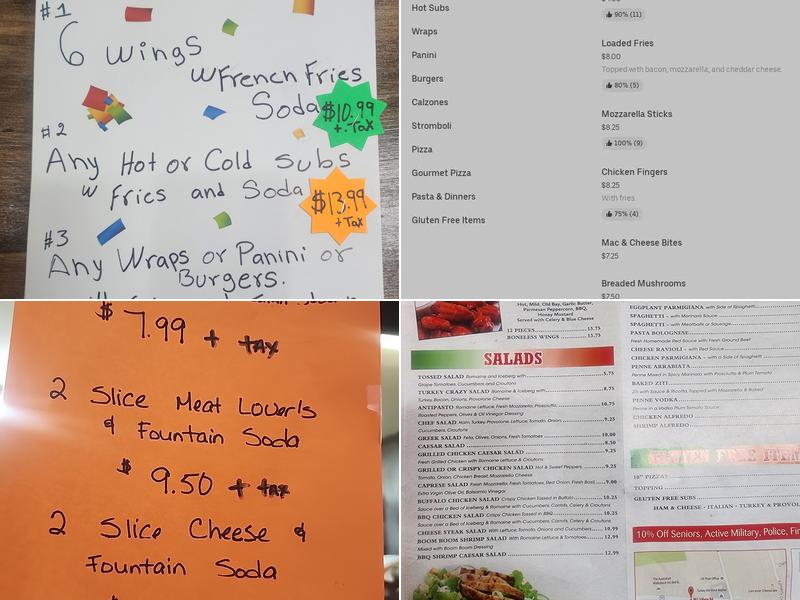 #1
6 wings
w French Fries
Soda
$10.99
+ Tax
#2
Any Hot or Cold subs
w fries and Soda
$13.99
+ Tax
#3
Any Wraps or Panini or
Burgers.
Hot Subs
Wraps
Panini
Burgers
Calzones
Stromboli
Pizza
Gourmet Pizza
Pasta & Dinners
Gluten Free Items
90% (11)
Loaded Fries
$8.00
Topped with bacon, mozzarella, and cheddar cheese.
80% (5)
Mozzarella Sticks
$8.25
100% (9)
Chicken Fingers
$8.25
With fries.
75% (4)
Mac & Cheese Bites
$7.25
Breaded Mushrooms
$7.50
$7.99 + tax
2 Slice Meat Lover's
& Fountain Soda
$9.50 + tax
2 Slice Cheese &
Fountain Soda
Hot, Mild, Old Bay, Garlic Butter,
Parmesan Peppercorn, BBQ,
Honey Mustard
Served with Celery & Blue Cheese
12 PIECES 15.75
BONELESS WINGS 13.75
SALADS
TOSSED SALAD Romaine and Iceberg with 5.75
Grape Tomatoes, Cucumbers and Croutons
TURKEY CRAZY SALAD Romaine & Iceberg with 8.75
Turkey, Bacon, Onions, Provolone Cheese
ANTIPASTO Romaine Lettuce, Fresh Mozzarella, Prosciutto, 10.75
Roasted Peppers, Olives & Oil Vinegar Dressing
CHEF SALAD Ham, Turkey, Provolone, Lettuce, Tomato, Onion, 9.25
Cucumbers, Croutons
GREEK SALAD Feta, Olives, Onions, Fresh Tomatoes 10.00
CAESAR SALAD 8.50
GRILLED CHICKEN CAESAR SALAD 9.25
Fresh Grilled Chicken with Romaine Lettuce & Croutons
GRILLED OR CRISPY CHICKEN SALAD Hot & Sweet Peppers, 9.25
Tomato, Onion, Chicken Breast, Mozzarella Cheese
CAPRESE SALAD Fresh Mozzarella, Fresh Tomatoes, Red Onion, Fresh Basil 9.00
Extra Virgin Olive Oil, Balsamic Vinegar
BUFFALO CHICKEN SALAD Crispy Chicken Tossed in Buffalo 10.25
Sauce over a Bed of Iceberg & Romaine with Cucumbers, Carrots, Celery & Croutons
BBQ CHICKEN SALAD Crispy Chicken Tossed in BBQ 10.25
Sauce over a Bed of Iceberg & Romaine with Cucumbers, Carrots, Celery & Croutons
CHEESE STEAK SALAD with Lettuce, Tomato, Onions and Cucumbers 10.99
BOOM BOOM SHRIMP SALAD with Romaine Lettuce & Tomatoes 12.99
Mixed with Boom Boom Dressing
BBQ SHRIMP CAESAR SALAD 12.99
EGGPLANT PARMIGIANA with Side of Spaghetti
SPAGHETTI - with Marinara Sauce
SPAGHETTI - with Meatballs or Sausage
PASTA BOLOGNESE
Fresh Homemade Red Sauce with Fresh Ground Beef
CHEESE RAVIOLI - with Red Sauce
CHICKEN PARMIGIANA - with a Side of Spaghetti
PENNE ARRABIATA
Penne Mixed in Spicy Marinara with Prosciutto & Plum Tomato
BAKED ZITI
Ziti with Sauce & Ricotta, Topped with Mozzarella & Baked
PENNE VODKA
Penne in a Vodka Plum Tomato Sauce
CHICKEN ALFREDO
SHRIMP ALFREDO
GLUTEN FREE ITEM
10" PIZZA
TOPPING
GLUTEN FREE SUBS
HAM & CHEESE • ITALIAN • TURKEY & PROVOL
10% Off Seniors, Active Military, Police, Fir